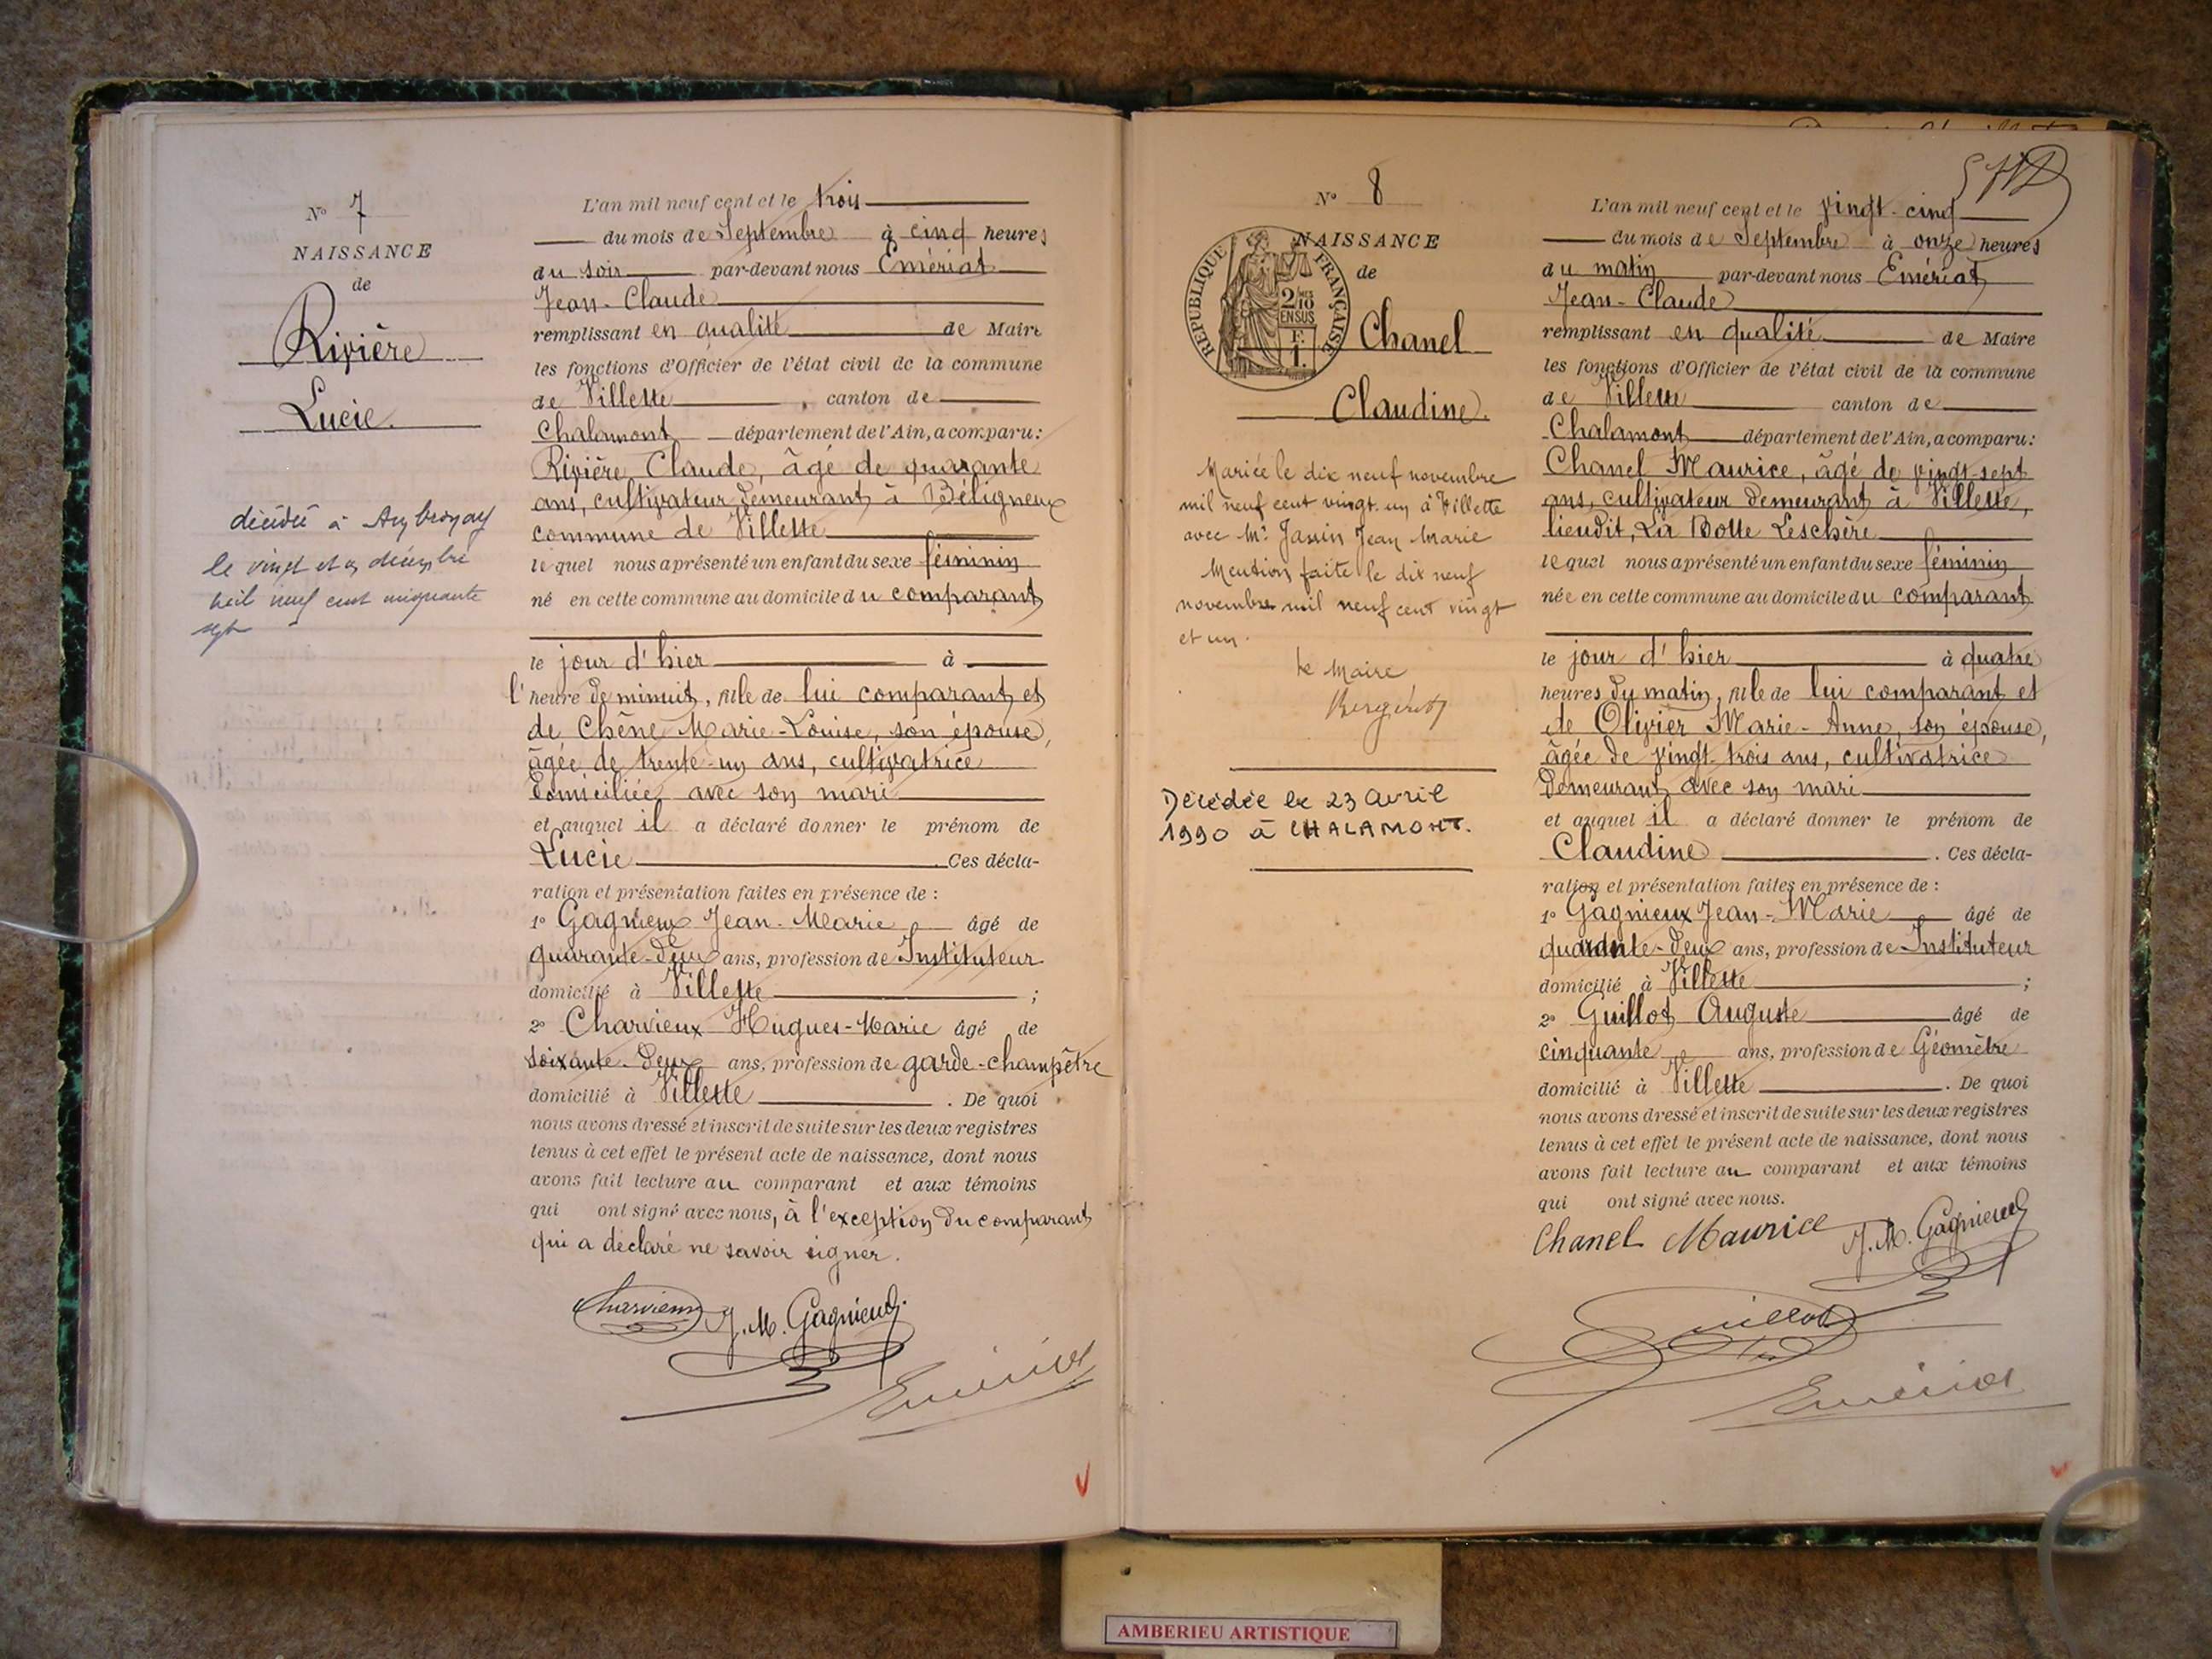 N° 7
NAISSANCE
de
Rivière
Lucie.
décédée à Ambronay
le vingt et un décembre
mil neuf cent cinquante
sept
L'an mil neuf cent et le trois
du mois de Septembre à cinq heures
du soir par-devant nous Emériat
Jean-Claude
remplissant en qualité de Maire
les fonctions d'Officier de l'état civil de la commune
de Villette, canton de
Chalamont département de l'Ain, a comparu:
Rivière Claude, âgé de quarante
ans, cultivateur demeurant à Béligneux
commune de Villette
lequel nous a présenté un enfant du sexe féminin
né en cette commune au domicile du comparant
le jour d'hier à
l'heure de minuit, fille de lui comparant et
de Chêne Marie-Louise, son épouse,
âgée de trente-un ans, cultivatrice
domiciliée avec son mari
et auquel il a déclaré donner le prénom de
Lucie. Ces décla-
ration et présentation faites en présence de :
1° Gagnieux Jean-Marie âgé de
quarante-deux ans, profession de Instituteur
domicilié à Villette ;
2° Charvieux Hugues-Marie âgé de
soixante-deux ans, profession de garde-champêtre
domicilié à Villette. De quoi
nous avons dressé et inscrit de suite sur les deux registres
tenus à cet effet le présent acte de naissance, dont nous
avons fait lecture au comparant et aux témoins
qui ont signé avec nous, à l'exception du comparant
qui a déclaré ne savoir signer.
Charvieux J. M. Gagnieux
Emériat
N° 8
NAISSANCE
de
RÉPUBLIQUE FRANÇAISE
2/10 EN SUS
F. 1.
Chanel
Claudine.
Mariée le dix neuf novembre
mil neuf cent vingt-un à Villette
avec Mr Jassin Jean Marie
Mention faite le dix neuf
novembre mil neuf cent vingt
et un.
Le Maire
Décédée le 23 avril
1990 à CHALAMONT.
L'an mil neuf cent et le vingt-cinq
du mois de Septembre à onze heures
du matin par-devant nous Emériat
Jean-Claude
remplissant en qualité de Maire
les fonctions d'Officier de l'état civil de la commune
de Villette canton de
Chalamont département de l'Ain, a comparu:
Chanel Maurice, âgé de vingt-sept
ans, cultivateur demeurant à Villette,
lieudit, La Botte Leschère
lequel nous a présenté un enfant du sexe féminin
née en cette commune au domicile du comparant
le jour d'hier à quatre
heures du matin, fille de lui comparant et
de Olivier Marie-Anne, son épouse,
âgée de vingt-trois ans, cultivatrice
demeurant avec son mari
et auquel il a déclaré donner le prénom de
Claudine. Ces décla-
ration et présentation faites en présence de :
1° Gagnieux Jean-Marie âgé de
quarante-deux ans, profession de Instituteur
domicilié à Villette ;
2° Guillot Auguste âgé de
cinquante ans, profession de Géomètre
domicilié à Villette. De quoi
nous avons dressé et inscrit de suite sur les deux registres
tenus à cet effet le présent acte de naissance, dont nous
avons fait lecture au comparant et aux témoins
qui ont signé avec nous.
Chanel Maurice J. M. Gagnieux
Guillot
Emériat
AMBERIEU ARTISTIQUE